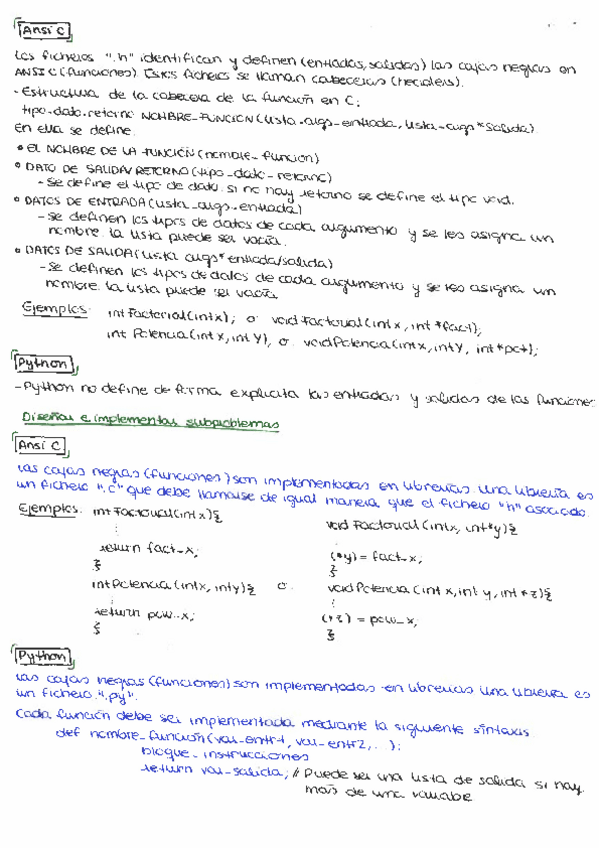 Ansi C
Los ficheros ".h" identifican y definen (entradas, salidas) las cajas negras en
ANSI C (funciones). Estos ficheros se llaman cabeceras (headers).
- Estructura de la cabecera de la función en C:
tipo-dato-retorno NOMBRE_FUNCION (lista-args-entrada, lista-args*salida)
En ella se define.
• EL NOMBRE DE LA FUNCIÓN (nombre_funcion)
• DATO DE SALIDA/RETORNO (tipo_dato_retorno)
- Se define el tipo de dato. si no hay retorno se define el tipo void.
• DATOS DE ENTRADA (lista_args_entrada)
- Se definen los tipos de datos de cada argumento y se les asigna un
nombre. la lista puede ser vacía.
• DATOS DE SALIDA (lista args*entrada/salida)
- Se definen los tipos de datos de cada argumento y se les asigna un
nombre. la lista puede ser vacía
Ejemplos: int Factorial(int x); o void Factorial (int x, int *fact);
int Potencia (int x, int Y), o void Potencia (int x, int Y, int *pot);
Python
- Python no define de forma explícita las entradas y salidas de las funciones
Diseñas e implementas subproblemas
Ansi C
Las cajas negras (funciones) son implementadas en librerías. Una librería es
un fichero ".c" que debe llamarse de igual manera que el fichero "h" asociado.
Ejemplos: int Factorial (int x){
void Factorial (int x, int*y){
⋮
return fact_x;
(*y) = fact_x;
}
}
int Potencia (int x, int y){ o void Potencia (int x, int y, int *z){
⋮
return pow_x;
(*z) = pow_x;
}
}
Python
Las cajas negras (funciones) son implementadas en librerías una librería es
un fichero ".py".
Cada función debe ser implementada mediante la siguiente sintaxis
def nombre_función (var-entr1, var-entr2, ...);
bloque_instrucciones
return var-salida; // Puede ser una lista de salida si hay
más de una variable